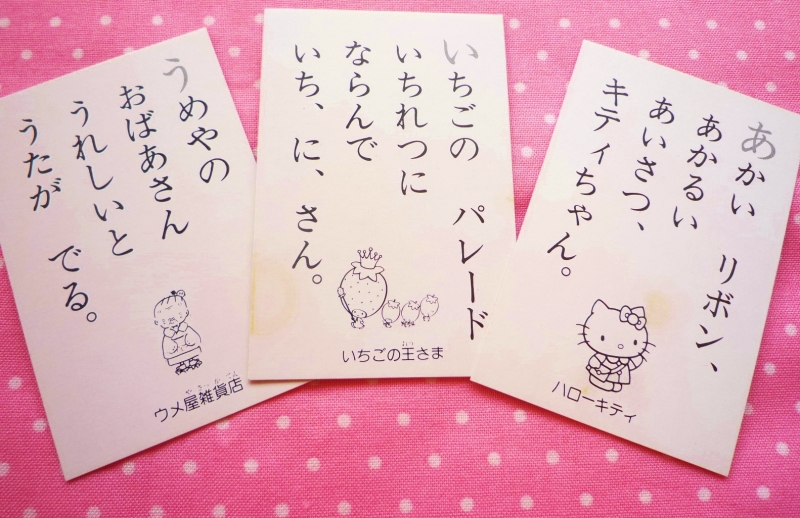 あかい リボン、
あかるい
あいさつ、
キティちゃん。
ハローキティ
いちごの パレード
いちれつに
ならんで
いち、に、さん。
おう
いちごの王さま
うめやの
おばあさん
うれしいと
うたが でる。
やざっかてん
ウメ屋雑貨店